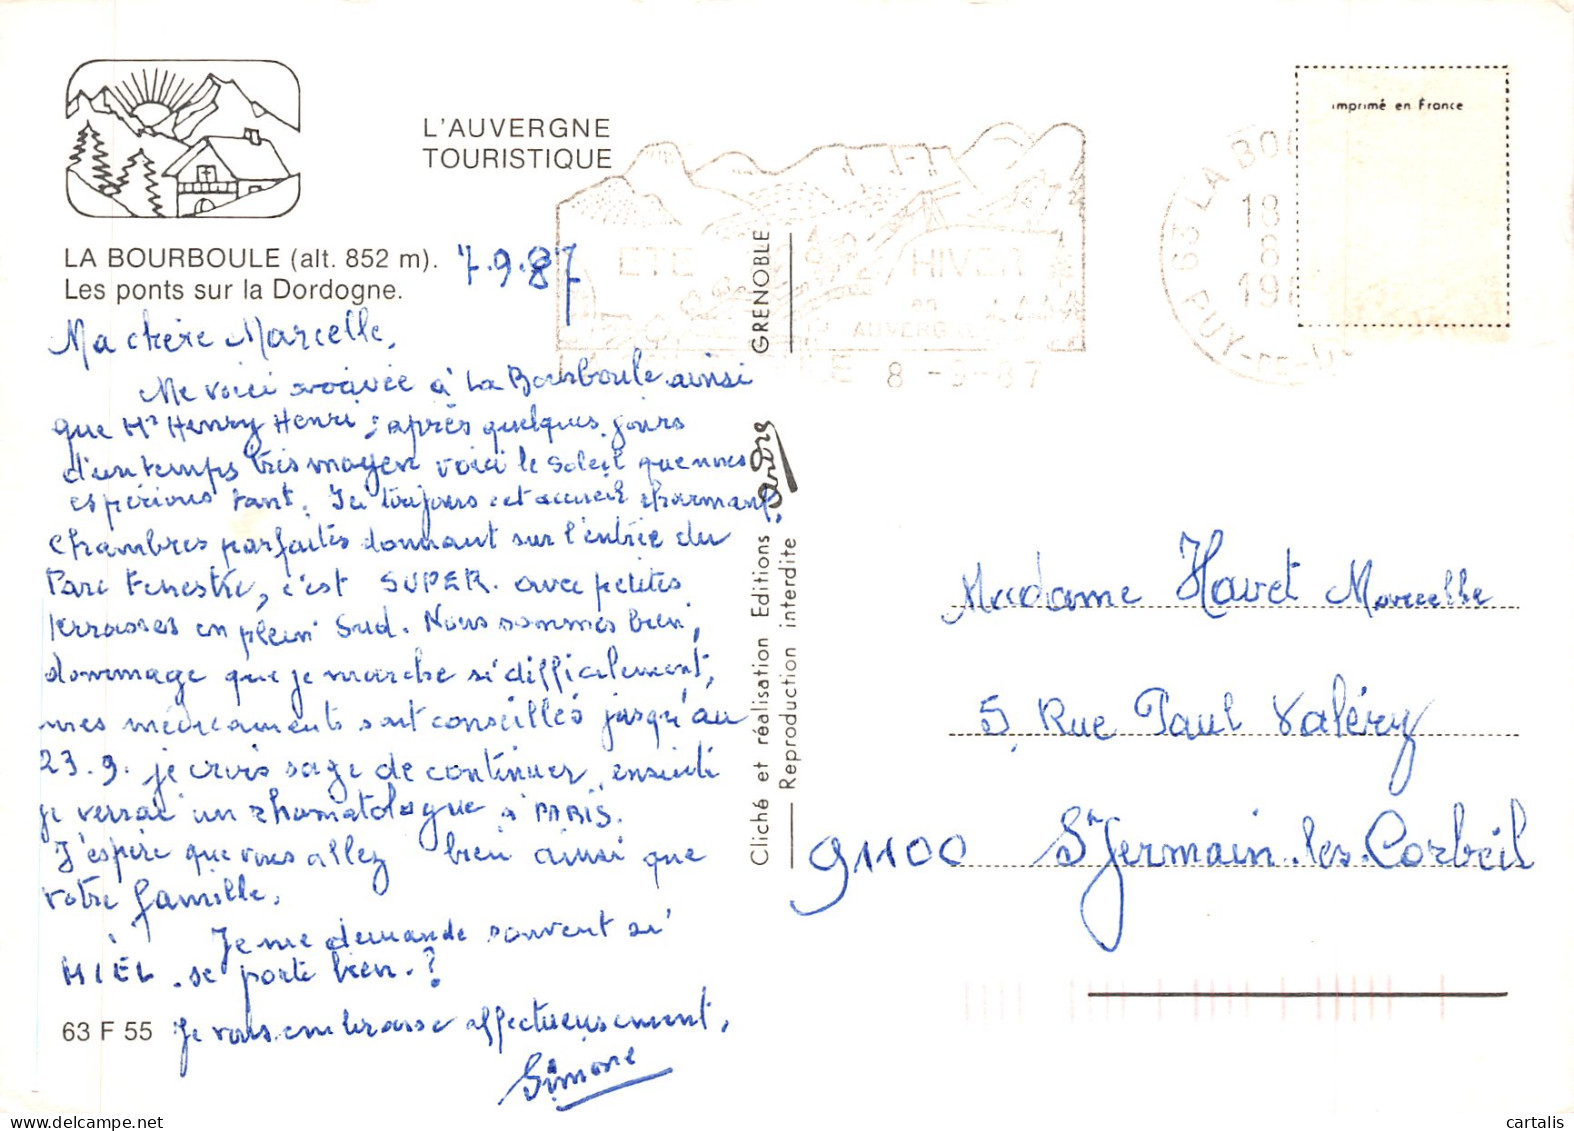 L'AUVERGNE
TOURISTIQUE
imprimé en France
LA BOURBOULE (alt. 852 m).
Les ponts sur la Dordogne.
7.9.87
ETE HIVER
en
AUVERGNE
8 -9-87
63 LA BO
18
8
19
PUY-DE-D
Ma chère Marcelle,
Me voici arrivée à La Bourboule ainsi
que Mr Henry Henri ; après quelques jours
d'un temps très moyen voici le soleil que nous
espérions tant. Ici toujours cet accueil charmant,
chambres parfaites donnant sur l'entrée du
Parc Fenestre, c'est SUPER. avec petites
terrasses en plein Sud. Nous sommes bien,
dommage que je marche si difficilement,
mes médicaments sont conseillés jusqu'au
23.9. je crois sage de continuer, ensuite
je verrai un rhumatologue à PARIS.
J'espère que vous allez bien ainsi que
votre famille.
Je me demande souvent si
MIEL . se porte bien. ?
Je vous embrasse affectueusement,
Simone
63 F 55
GRENOBLE
Cliché et réalisation Editions André
Reproduction interdite
Madame Havet Marcelle
5, Rue Paul Valéry
91100 St Germain-les-Corbeil
cartalis